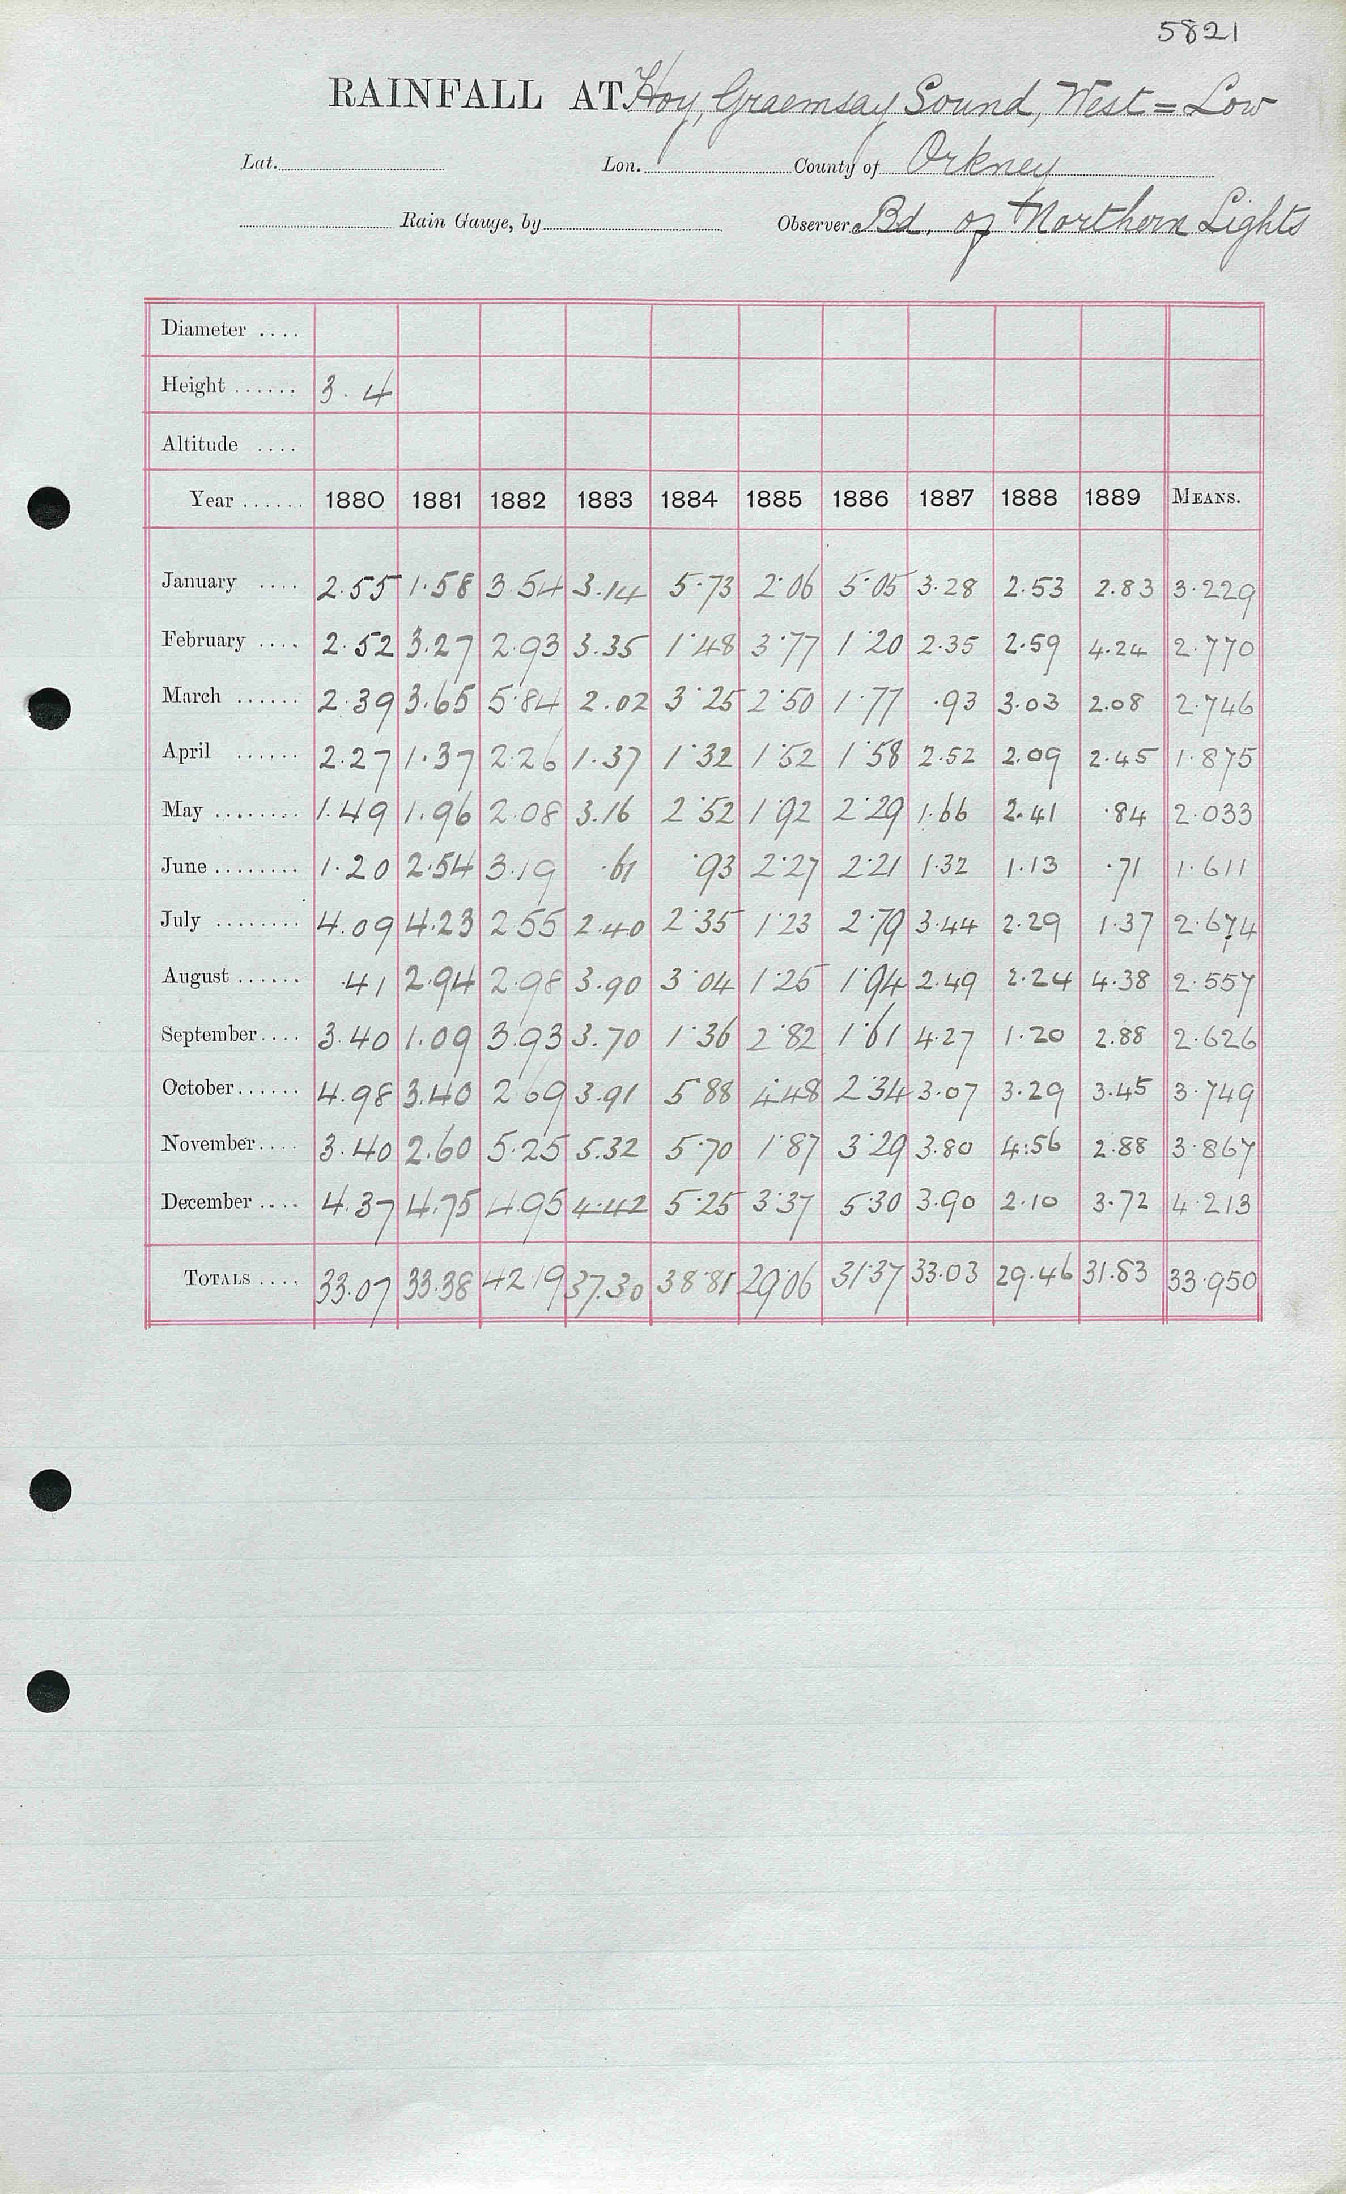 5821
RAINFALL AT Hoy, Graemsay Sound, West = Low
Lat. Lon. County of Orkney
Rain Gauge, by Observer Bd. of Northern Lights
Diameter ....
Height ...... 3.4
Altitude ....
Year ...... 1880 1881 1882 1883 1884 1885 1886 1887 1888 1889 MEANS.
January .... 2.55 1.58 3.54 3.14 5.73 2.06 5.05 3.28 2.53 2.83 3.229
February .... 2.52 3.27 2.93 3.35 1.48 3.77 1.20 2.35 2.59 4.24 2.770
March ...... 2.39 3.65 5.84 2.02 3.25 2.50 1.77 .93 3.03 2.08 2.746
April ...... 2.27 1.37 2.26 1.37 1.32 1.52 1.58 2.52 2.09 2.45 1.875
May ........ 1.49 1.96 2.08 3.16 2.52 1.92 2.29 1.66 2.41 .84 2.033
June ........ 1.20 2.54 3.19 .61 .93 2.27 2.21 1.32 1.13 .71 1.611
July ........ 4.09 4.23 2.55 2.40 2.35 1.23 2.79 3.44 2.29 1.37 2.674
August ...... .41 2.94 2.98 3.90 3.04 1.25 1.94 2.49 2.24 4.38 2.557
September .... 3.40 1.09 3.93 3.70 1.36 2.82 1.61 4.27 1.20 2.88 2.626
October ...... 4.98 3.40 2.69 3.91 5.88 4.48 2.34 3.07 3.29 3.45 3.749
November .... 3.40 2.60 5.25 5.32 5.70 1.87 3.29 3.80 4.56 2.88 3.867
December .... 4.37 4.75 4.95 4.42 5.25 3.37 5.30 3.90 2.10 3.72 4.213
TOTALS .... 33.07 33.38 42.19 37.30 38.81 29.06 31.37 33.03 29.46 31.83 33.950